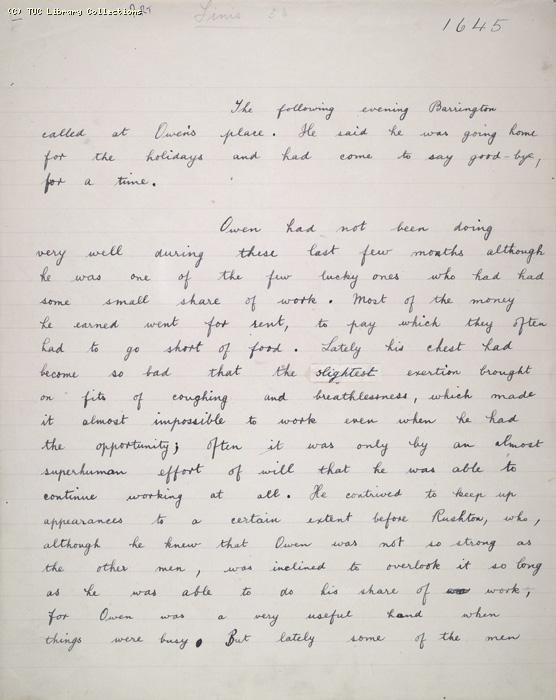 (C) TUC Library Collections
1645
The following evening Barrington
called at Owen's place. He said he was going home
for the holidays and had come to say good-bye,
for a time.
Owen had not been doing
very well during these last few months although
he was one of the few lucky ones who had had
some small share of work. Most of the money
he earned went for rent, to pay which they often
had to go short of food. Lately his chest had
become so bad that the slightest exertion brought
on fits of coughing and breathlessness, which made
it almost impossible to work even when he had
the opportunity; often it was only by an almost
superhuman effort of will that he was able to
continue working at all. He contrived to keep up
appearances to a certain extent before Rushton, who,
although he knew that Owen was not so strong as
the other men, was inclined to overlook it so long
as he was able to do his share of work,
for Owen was a very useful hand when
things were busy. But lately some of the men